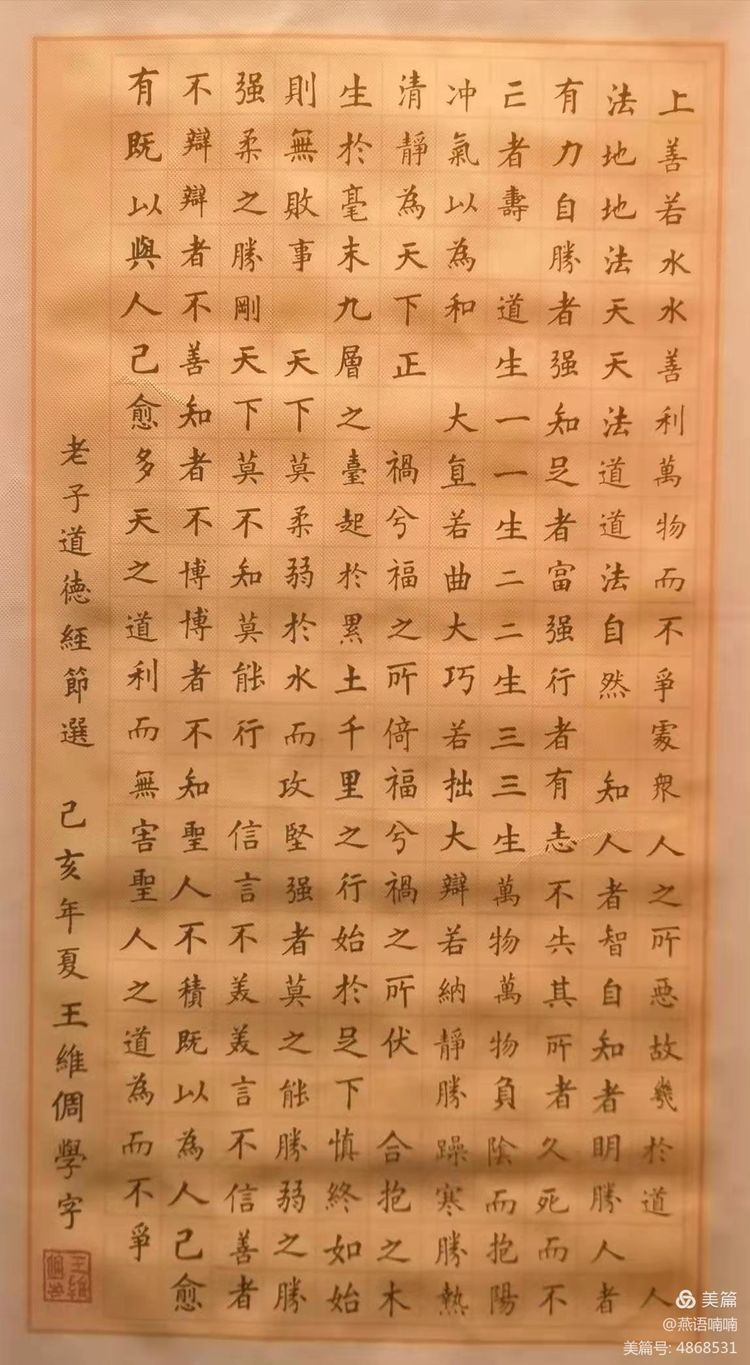 上善若水水善利萬物而不爭處衆人之所惡故幾於道 人
法地地法天天法道道法自然 知人者智自知者明勝人者
有力自勝者强知足者富强行者有志不失其所者久死而不
亡者壽 道生一一生二二生三三生萬物萬物負陰而抱陽
冲氣以為和 大直若曲大巧若拙大辯若納靜勝躁寒勝熱
清靜為天下正 禍兮福之所倚福兮禍之所伏 合抱之木
生於毫末九層之臺起於累土千里之行始於足下慎終如始
則無敗事 天下莫柔弱於水而攻堅强者莫之能勝弱之勝
强柔之勝剛天下莫不知莫能行 信言不美美言不信善者
不辯辯者不善知者不博博者不知聖人不積既以為人己愈
有既以與人己愈多天之道利而無害聖人之道為而不爭
老子道德經節選 己亥年夏王維倜學字
王維
美篇
@燕语喃喃
美篇号: 4868531